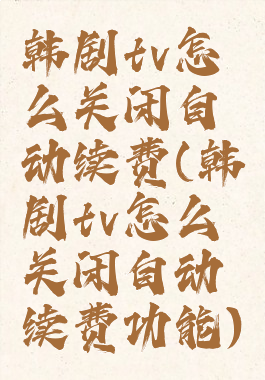 韩剧tv怎
么关闭自
动续费(韩
剧tv怎么
关闭自动
续费功能)